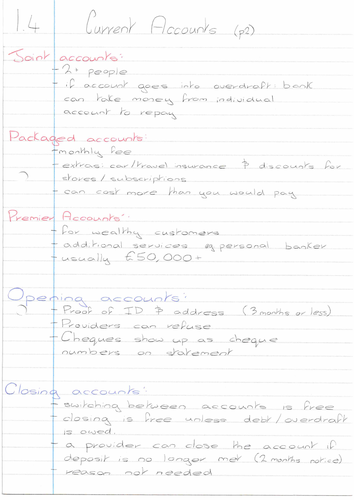 1.4 Current Accounts (p2)
Joint accounts:
- 2+ people
- if account goes into overdraft: bank
can take money from individual
account to repay
Packaged accounts:
- monthly fee
- extras: car/travel insurance & discounts for
stores/subscriptions
- can cost more than you would pay
Premier Accounts:
- for wealthy customers
- additional services eg personal banker
- usually £50,000+
Opening accounts:
- Proof of ID & address (3 months or less)
- Providers can refuse
- Cheques show up as cheque
numbers on statement
Closing accounts:
- switching between accounts is free
- closing is free unless debt/overdraft
is owed
- a provider can close the account if
deposit is no longer met (2 months notice)
- reason not needed